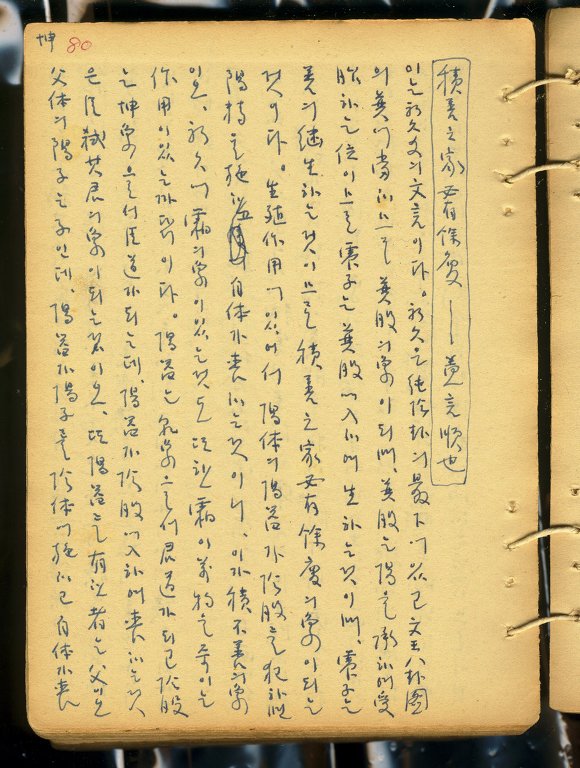 坤 80
積善之家必有餘慶 — 蓋言順也
이는 初六爻의 文言이다。初六은 純陰卦의 最下에 있고 文王八卦圖
의 巽에 當하므로 巽股의 象이 되며、巽股는 陽을 承하여 受
胎하는 位이므로 震子는 巽股에 入하여 生하는 것이며、震子는
善의 繼生하는 것이므로 積善之家必有餘慶의 象이 되는
것이다。生殖作用에 있어서 陽体의 陽器가 陰股를 犯하면
陽精을 施하고 自体가 喪하는 것이니、이가 積不善의 象
이오、初六에 霜의 象이 있는 것도 또한 霜이 萬物을 죽이는
作用이 있는 까닭이다。陽器는 乾象으로서 君道가 되고 陰股
는 坤象으로서 臣道가 되는데、陽器가 陰股에 入하여 喪하는 것
은 臣弑其君의 象이 되는 것이오、또 陽器를 有한 者는 父이오
父体의 陽子는 子인데、陽器가 陽子를 陰体에 施하고 自体가 喪